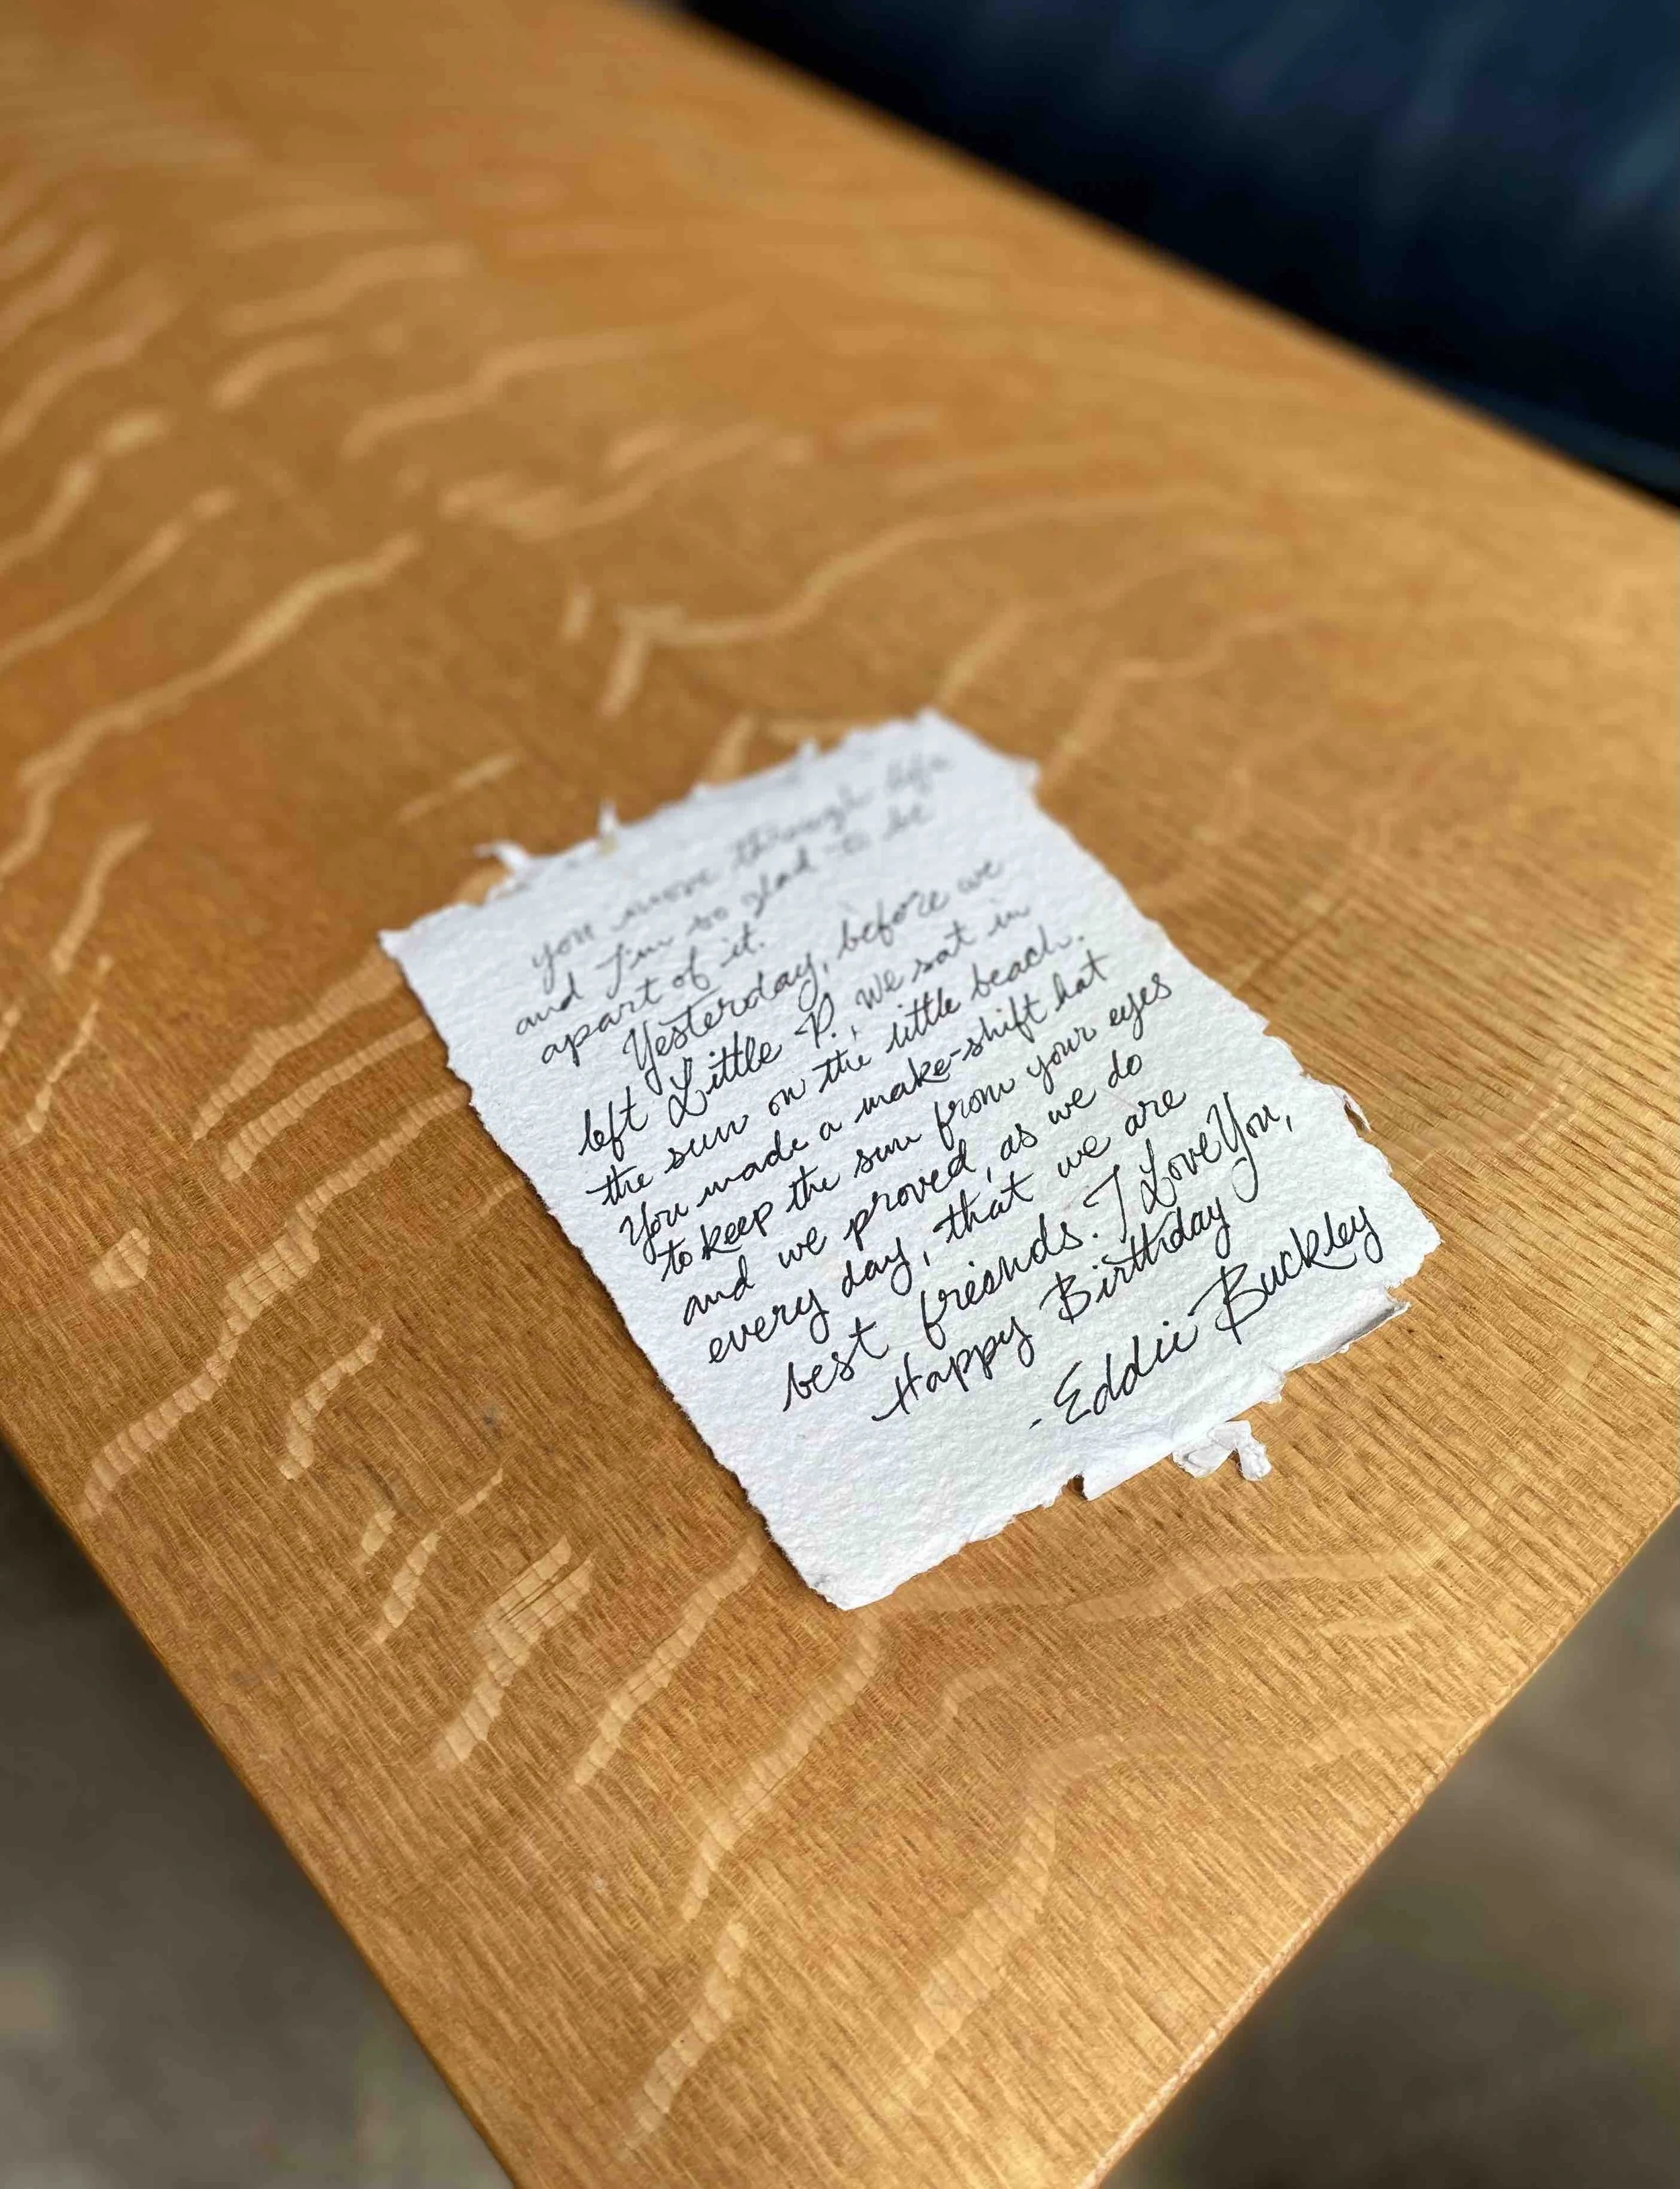 you move through life
and I'm so glad to be
apart of it.
Yesterday, before we
left Little P., we sat in
the sun on the little beach.
You made a make-shift hat
to keep the sun from your eyes
and we proved, as we do
every day, that we are
best freinds. I Love You,
Happy Birthday
-Eddie Buckley